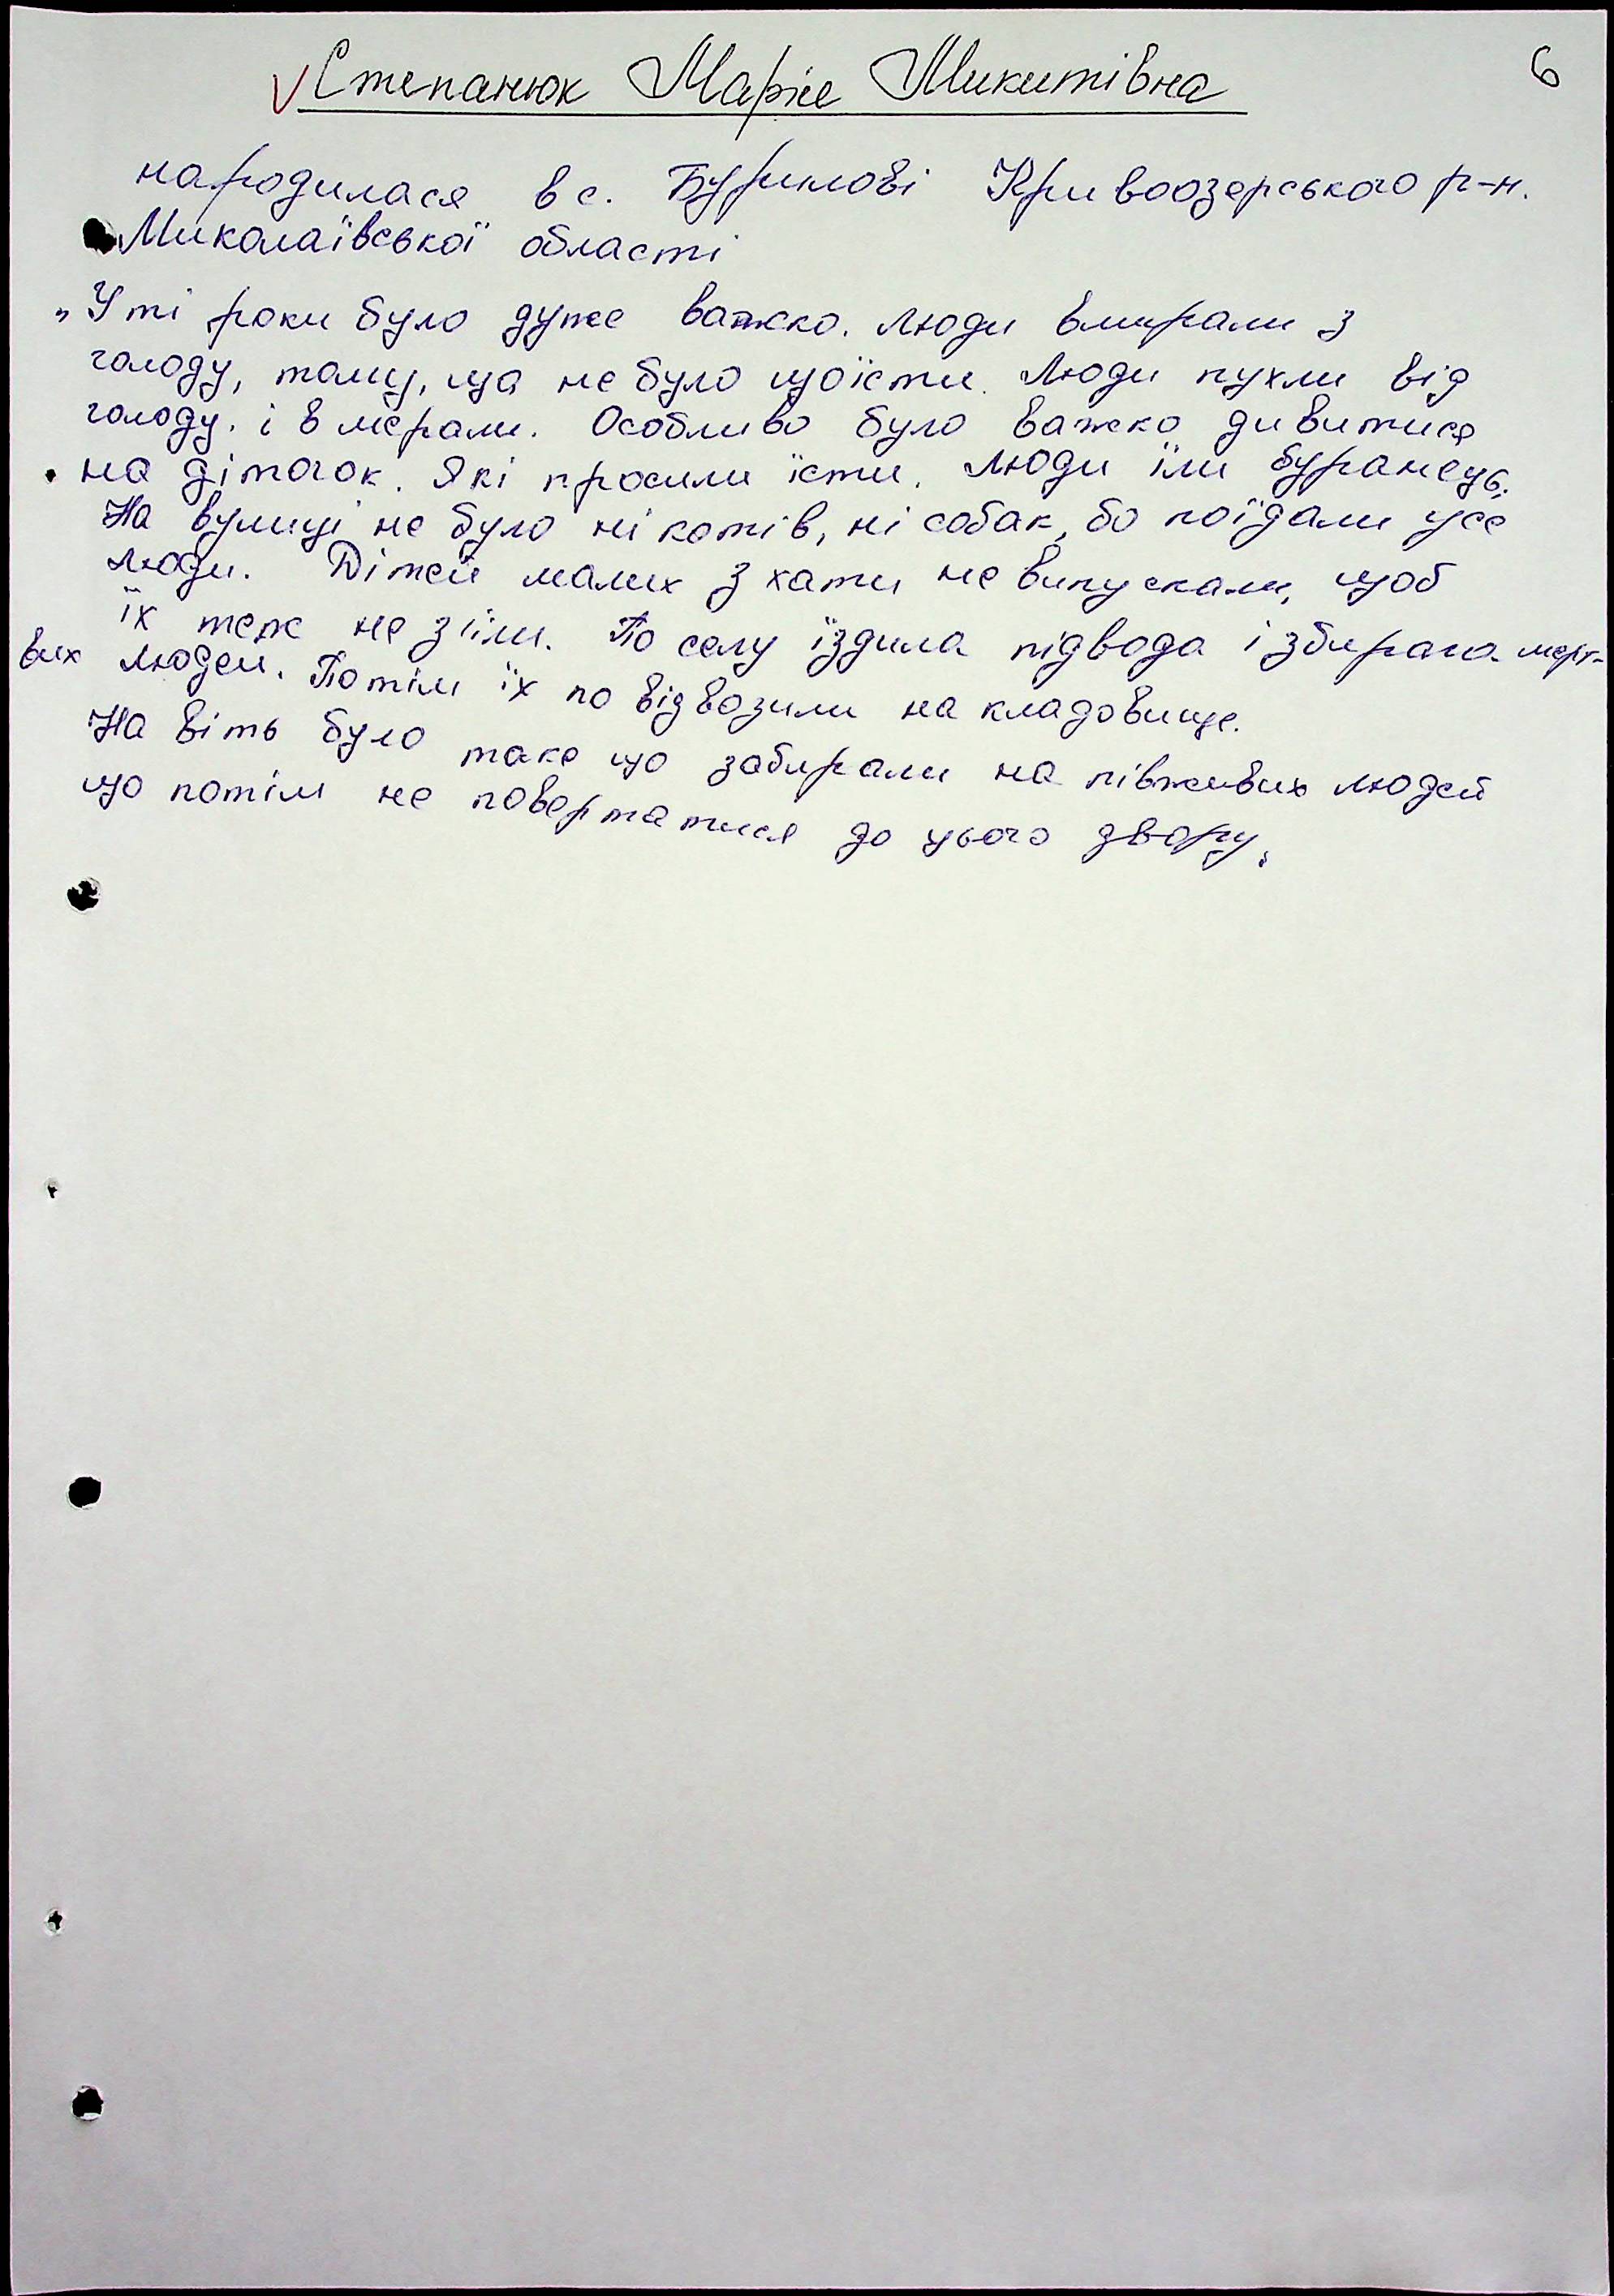 6
Степанюк Марія Микитівна
народилася в с. Бурилові Кривоозерського р-н.
Миколаївської області
„У ті роки було дуже важко. Люди вмирали з
голоду, тому, що не було що їсти. Люди пухли від
голоду. і в мерали. Особливо було важко дивитися
на діточок. Які просили їсти. Люди їли буранець.
На вулиці не було ні котів, ні собак, бо поїдали усе
люди. Дітей малих з хати не випускали, щоб
їх теж не з їли. По селу їздила підвода і збирала мерт-
вих людей. Потім їх по відвозили на кладовище.
На віть було таке що забирали на півживих людей
що потім не повертатися до цього двору.